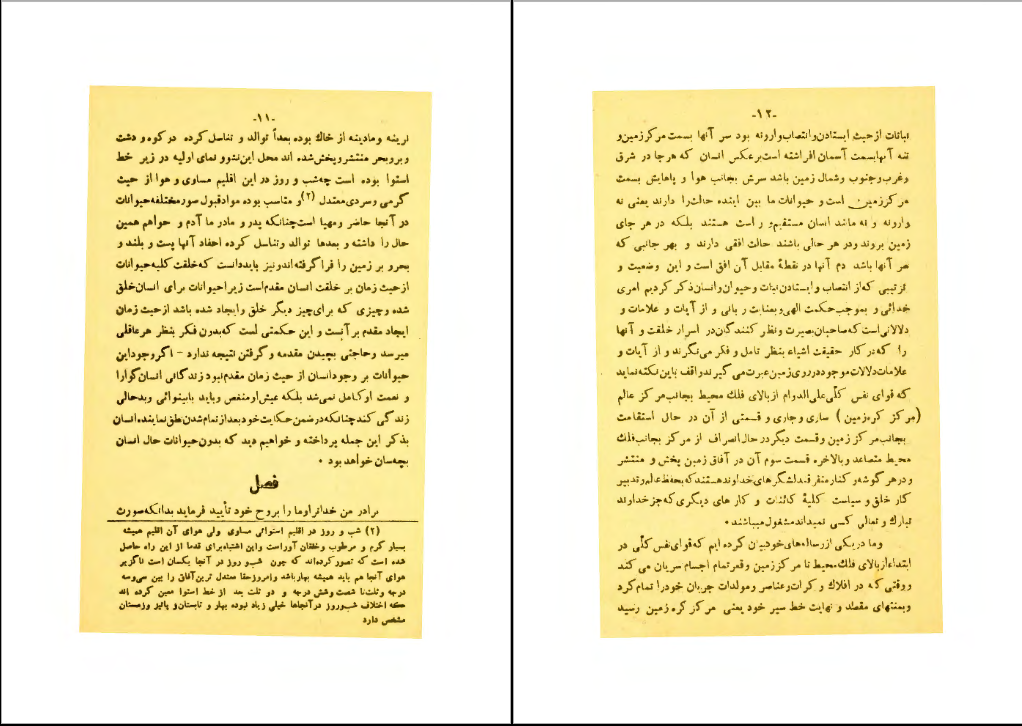 -۱۱-
نرینه ومادینه از خاك بوده بعداً توالد و تناسل كرده در كوه و دشت
و بر و بحر منتشر و پخش شده اند محل این نشوو نمای اولیه در زیر خط
استوا بوده است چه شب و روز در این اقلیم مساوی و هوا از حیث
گرمی و سردی معتدل (۲) و متناسب بوده مواد قبول صور مختلفه حیوانات
در آنجا حاضر و مهیا است چنانكه پدر و مادر ما آدم و حوا هم همین
حال را داشته و بعدها توالد و تناسل كرده احفاد آنها پست و بلند و
بحر و بر زمین را فرا گرفته اند و نیز باید دانست كه خلقت كلیه حیوانات
از حیث زمان بر خلقت انسان مقدم است زیرا حیوانات برای انسان خلق
شده و چیزی كه برای چیز دیگر خلق و ایجاد شده باشد از حیث زمان
ایجاد مقدم بر آنست و این حكمتی است كه بدون فكر بنظر هر عاقلی
میرسد و حاجتی بچیدن مقدمه و گرفتن نتیجه ندارد - اگر وجود این
حیوانات بر وجود انسان از حیث زمان مقدم نبود زندگانی انسان گوارا
و نعمت او كامل نمی شد بلكه عیش او منغص و باید بابینوائی و بدحالی
زندگی كند چنانكه در ضمن حكایت خود بعد از تمام شدن نطق نماینده انسان
بذكر این جمله پرداخته و خواهیم دید كه بدون حیوانات حال انسان
بچه سان خواهد بود ٠
فصل
برادر من خدا تراوما را بروح خود تأیید فرماید بدانكه صورت
(۲) شب و روز در اقلیم استوائی مساوی ولی هوای آن اقلیم همیشه
بسیار گرم و مرطوب و خفقان آور است و این اشتباه برای قدما از این راه حاصل
شده است كه تصور كرده اند كه چون شب و روز در آنجا یكسان است ناگزیر
هوای آنجا هم باید همیشه بهار باشد و امروز حقا معتدل ترین آفاق را بین سی و سه
درجه و ثلث تا شصت و شش درجه و دو ثلث بعد از خط استوا معین كرده اند
كه اختلاف شب و روز در آنجاها خیلی زیاد نبوده بهار و تابستان و پائیز و زمستان
مشخص دارد
-۱۲-
نباتات از حیث ایستادن و انتصاب وارونه بود سر آنها بسمت مركز زمین و
تنه آنها بسمت آسمان افراشته است بر عكس انسان كه هر جا در شرق
و غرب و جنوب و شمال زمین باشد سرش بجانب هوا و پاهایش بسمت
مركز زمین است و حیوانات ما بین اینده حالت را دارند یعنی نه
وارونه و نه مانند انسان مستقیم و راست هستند بلكه در هر جای
زمین بروند و در هر حالی باشند حالت افقی دارند و بهر جانبی كه
سر آنها باشد دم آنها در نقطهٔ مقابل آن افق است و این وضعیت و
ترتیبی كه از انتصاب و ایستادن نبات و حیوان و انسان ذكر كردیم امری
خدائی و بموجب حكمت الهی و بعنایت ربانی و از آیات و علامات و
دلالاتی است كه صاحبان بصیرت و نظر كنندگان در اسرار خلقت و آنها
را كه در كار حقیقت اشیاء بنظر تامل و فكر می نگرند و از آیات و
علامات و دلالات موجوده در روی زمین عبرت می گیرند واقف باین نكته نماید
كه قوای نفس كلّی علی الدوام از بالای فلك محیط بجانب مركز عالم
(مركز كره زمین) ساری و جاری و قسمتی از آن در حال استقامت
بجانب مركز زمین و قسمت دیگر در حال انصراف از مركز بجانب فلك
محیط متصاعد و بالاخره قسمت سوم آن در آفاق زمین پخش و منتشر
و در هر گوشه و كنار متفرقند لشگرهای خداوند هستند كه بحفظ عالم و تدبیر
كار خلق و سیاست كلیهٔ كائنات و كارهای دیگری كه جز خداوند
تبارك و تعالی كسی نمیداند مشغول میباشند ٠
و ما در یكی از رساله های خود بیان كرده ایم كه قوای نفس كلّی در
ابتداء از بالای فلك محیط تا مركز زمین و قعر تمام اجسام سریان می كند
و وقتی كه در افلاك و كرات و عناصر و مولدات جریان خود را تمام كرد
و بمنتهای مقصد و نهایت خط سیر خود یعنی مركز كره زمین رسید